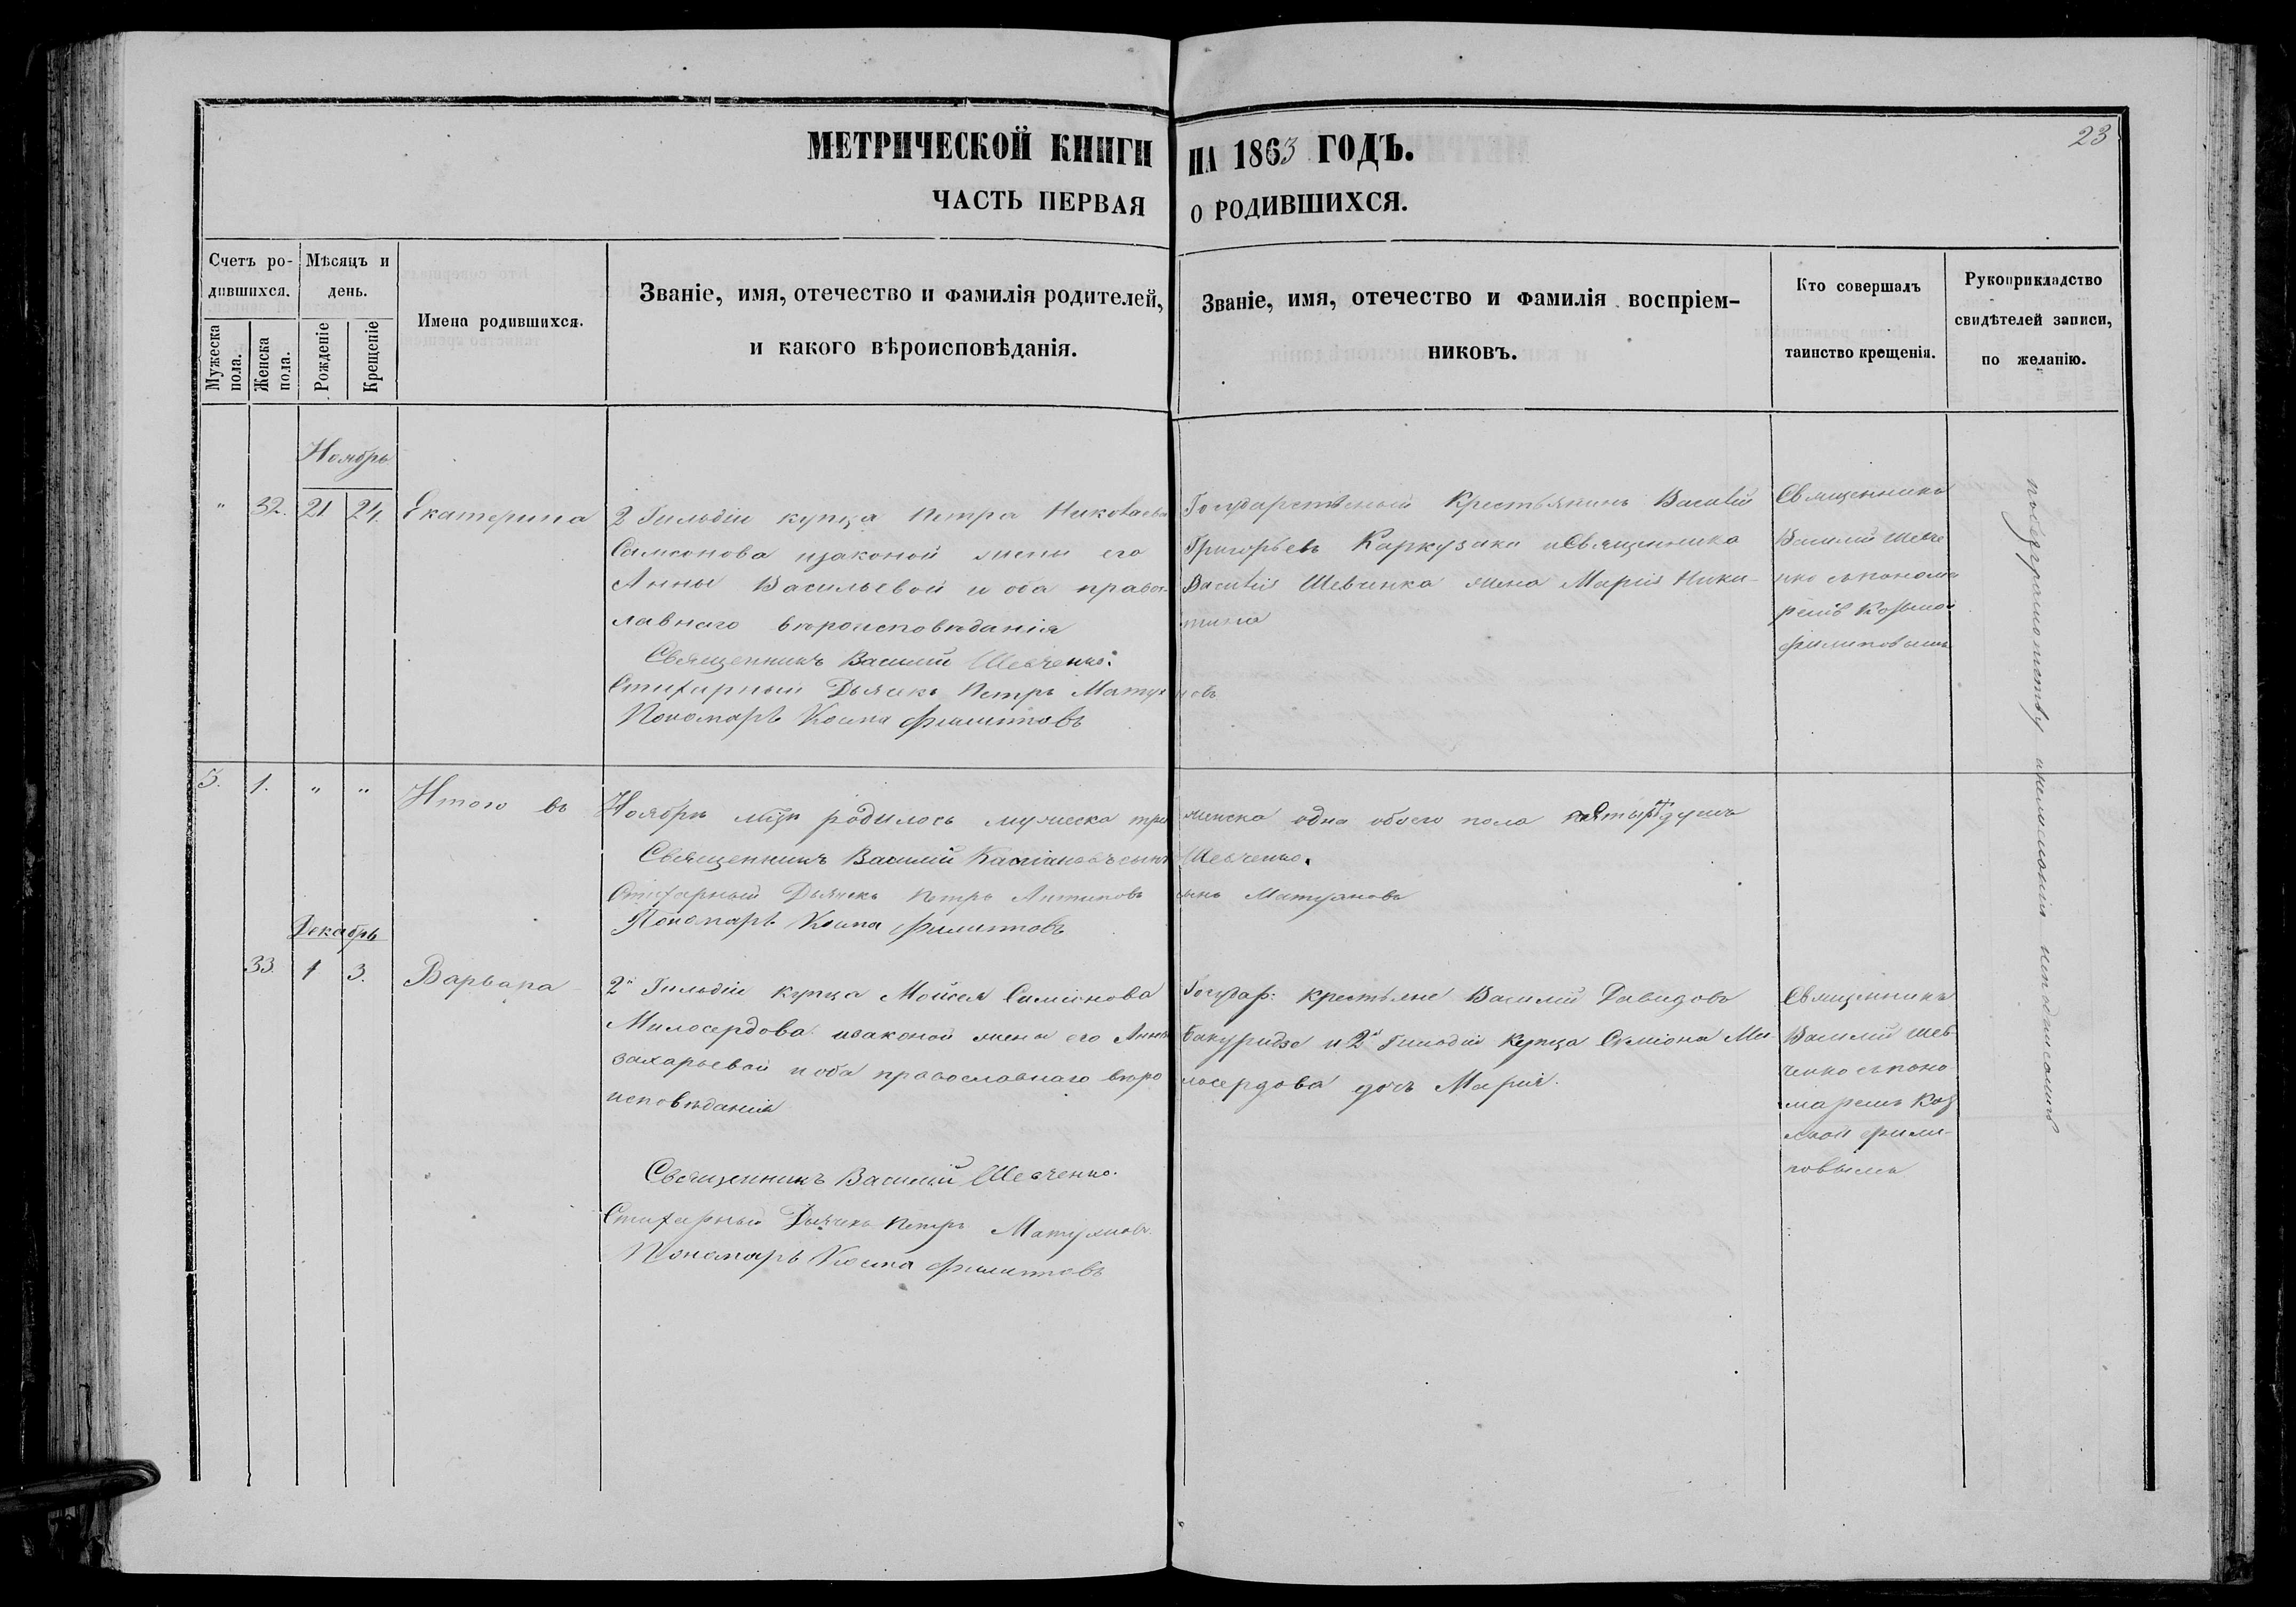 МЕТРИЧЕСКОЙ КНИГИ НА 1863 ГОДЪ.
23
ЧАСТЬ ПЕРВАЯ О РОДИВШИХСЯ.
Счетъ ро-
дившихся.
Мужеска пола.
Женска пола.
Мѣсяцъ и
день.
Рожденіе
Крещеніе
Имена родившихся.
Званіе, имя, отечество и фамилія родителей,
и какого вѣроисповѣданія.
Званіе, имя, отечество и фамилія воспріем-
никовъ.
Кто совершалъ
таинство крещенія.
Рукоприкладство
свидѣтелей записи,
по желанію.
Ноябрь
" 32. 21 24. Екатерина
2 Гильдіи купца Петра Николаева
Самсонова изаконой жены его
Анны Васильевой и оба правос-
лавнаго вѣроисповѣданія
Священникъ Василій Шевченко.
Стихарный Дьячекъ Петръ Матуяновъ
Пономарь Косма Филиповъ
Государственый Крестьянинъ Василій
Григорьевъ Каркузаки иСвященника
Василія Шевченка жена Марія Ники-
тина
Священникъ
Василій Шевче
нко съпонома
ремъ Козьмой
Филиповымъ
5. 1. " " Итого въ Ноябрѣ мцѣ родилось мужеска три женска одна обоего пола четыре душъ
Священникъ Василій Касіановъ сынъ Шевченко.
Стихарный Дьячекъ Петръ Антиповъ сынъ Матуяновъ
Пономарь Косма Филиповъ
Декабрь
33. 1 3. Варвара
2й Гильдіи купца Мойсея Симіонова
Милосердова изаконой жены его Анны
захарьевой и оба православнаго вѣро
исповѣданія
Священникъ Василій Шевченко.
Стихарный Дьячекъ Петръ Матуяновъ.
Пономарь Косма Филиповъ
Государ: крестьяне Василій Давидовъ
Бакуридзе и 2й Гильдіи Купца Семіона Ми
лосердова дочъ Марія.
Священникъ
Василій Шев
ченко съпоно
маремъ Коз
мой Фили-
повымъ